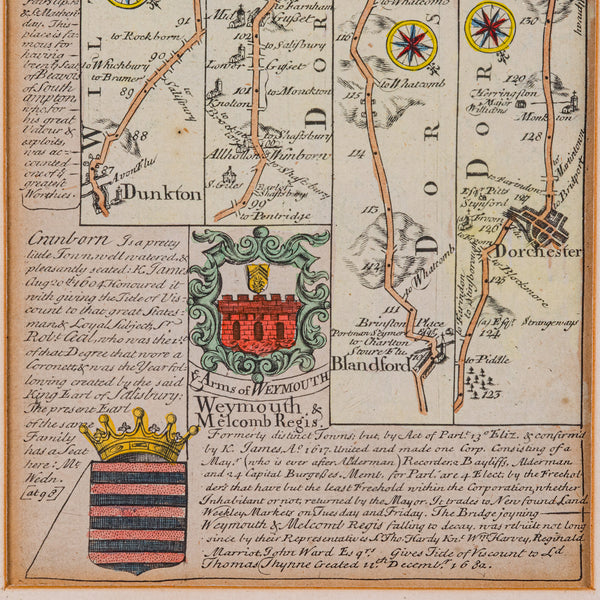 & Matthew
day. This
place is fa
mous for
having
been y.e Seat
of Beavois
of South
ampton
who for
his great
Valour &
exploits,
was ac-
counted
one of y.e
greatest
Worthies.
WILT
91
to Rockborn
90
to Whichbury
to Bramer
89
to Salisbury
88
87
Avon Flu
Dunkton
to Farnham
Gusset
to Salisbury
Lower Gusset
101
to Monckton
Knolton
to Shaftsbury
Allhollon Winborn
100
to Shaftsbury
S. Giles
99
to Pentridge
DOR
to Whatcomb
116
to Whatcomb
114
113
to Whatcomb
111
Brinston Place
Portman Seymor Esq.
to Charlton
Stoure Flu
Blandford
DORS
130
120
Herringston
Major Williams
Monkton
128
to Martinstown
to Bridport
Esq.r Pitts
Stinsford
127
Froom
126
Dorchester
to Blockmore
125
Strangeways
124
to Pidle
123
DOR
Cranborn Is a pretty
little Town, well watered, &
pleasantly seated: K. James
Aug 20.th 1604 Honoured it
with giving the Title of Vis
count to that great States=
man & Loyal Subject, S.r
Rob.t Cecil, who was the 1.st
of that Degree that wore a
Coronet, & was the Year fol
lowing created by the said
King Earl of Salisbury:
The present Earl
of the same
Family
has a Seat
here: M.t
Wedn.
& Arms of WEYMOUTH
Weymouth &
Melcomb Regis.
Formerly distinct Towns; but, by Act of Parl.t 13.o Eliz. & confirm'd
by K. James, A.o 1617. United and made one Corp. Consisting of a
May.r (who is ever after Alderman) Recorder 2 Bayliffs, Alderman
and 24 Capital Burgesses. Memb. for Parl. are 4 Elect. by the Freehol-
ders that have but the least Freehold within the Corporation, whether
Inhabitant or not; returned by the Mayor. It trades to New found Land
Weekley Markets on Tuesday and Friday. The Bridge joyning
Weymouth & Melcomb Regis falling to decay. was rebuilt not long
since by their Representatives S.r Tho. Hardy Kn.t W.m Harvey, Reginald
Marriot, John Ward Esq.rs Gives Title of Viscount to L.d
Thomas Thynne Created 11.th Decemb.r 1682.